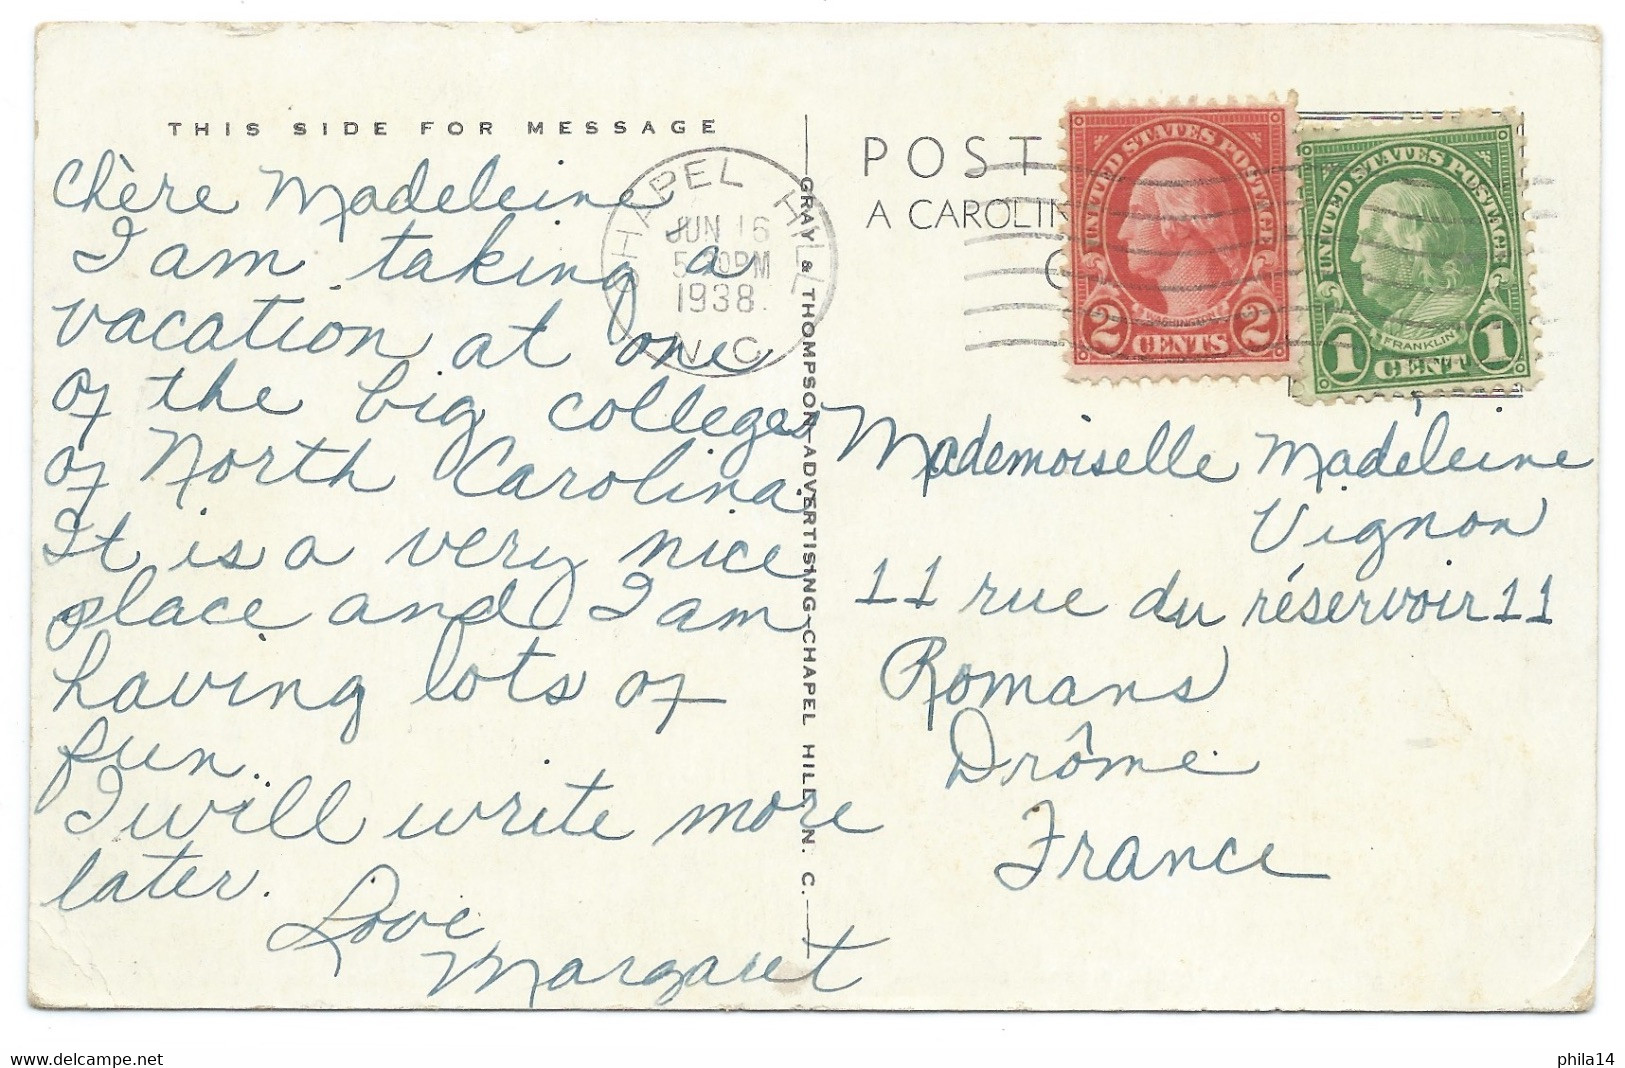 THIS SIDE FOR MESSAGE
Chère Madeleine
I am taking a
vacation at one
of the big colleges
of North Carolina.
It is a very nice
place and I am
having lots of
fun.
I will write more
later.
Love
Margaret
CHAPEL HILL
JUN 16
PM
1938
N.C.
GRAY & THOMPSON—ADVERTISING—CHAPEL HILL, N. C.
POST
A CAROLIN
UNITED STATES POSTAGE
WASHINGTON
2 CENTS 2
UNITED STATES POSTAGE
FRANKLIN
1 CENT 1
Mademoiselle Madeleine
Vignon
11 rue du réservoir 11
Romans
Drôme
France
www.delcampe.net
phila14